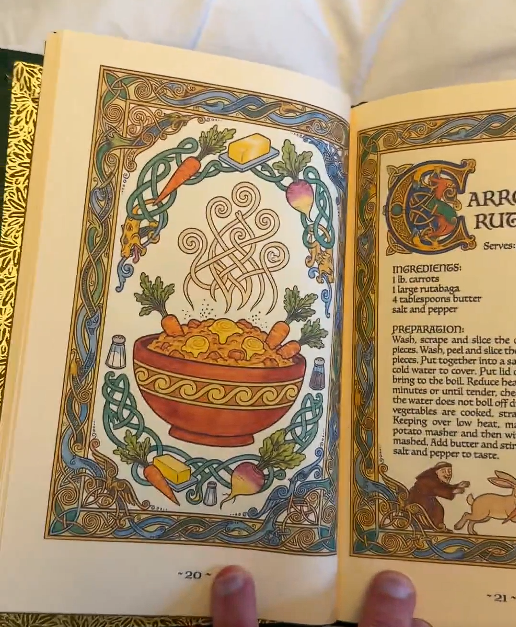 ~20~
CARRO
RUT
Serves:
INGREDIENTS:
1 lb. carrots
1 large rutabaga
4 tablespoons butter
salt and pepper
PREPARATION:
Wash, scrape and slice the c
pieces. Wash, peel and slice the
pieces. Put together into a sa
cold water to cover. Put lid o
bring to the boil. Reduce hea
minutes or until tender, che
the water does not boil off d
vegetables are cooked, stra
Keeping over low heat, ma
potato masher and then wi
mashed. Add butter and stir
salt and pepper to taste.
~21~